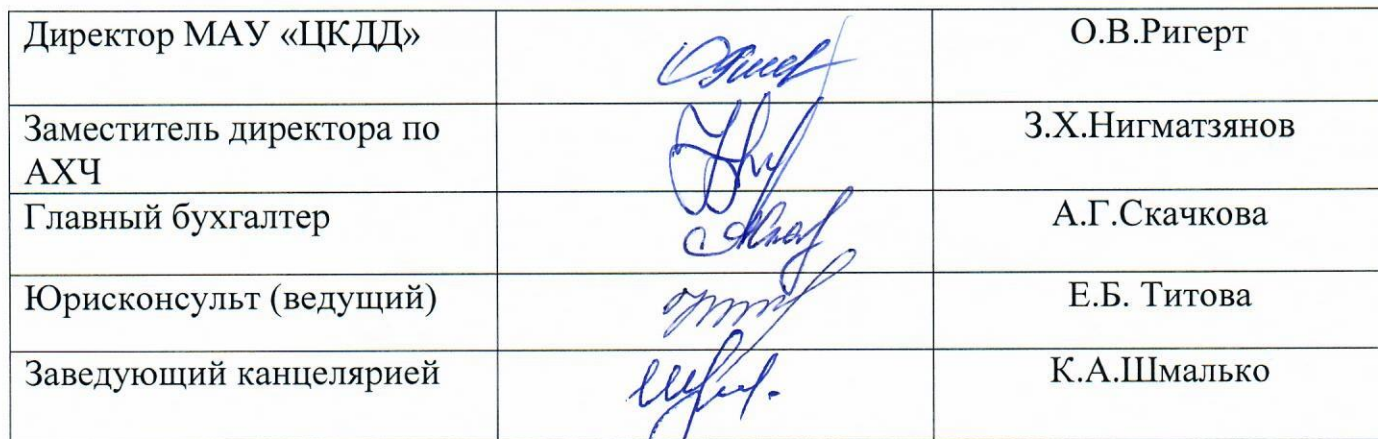 Директор МАУ «ЦКДД» О.В.Ригерт
Заместитель директора по З.Х.Нигматзянов
АХЧ
Главный бухгалтер А.Г.Скачкова
Юрисконсульт (ведущий) Е.Б. Титова
Заведующий канцелярией К.А.Шмалько